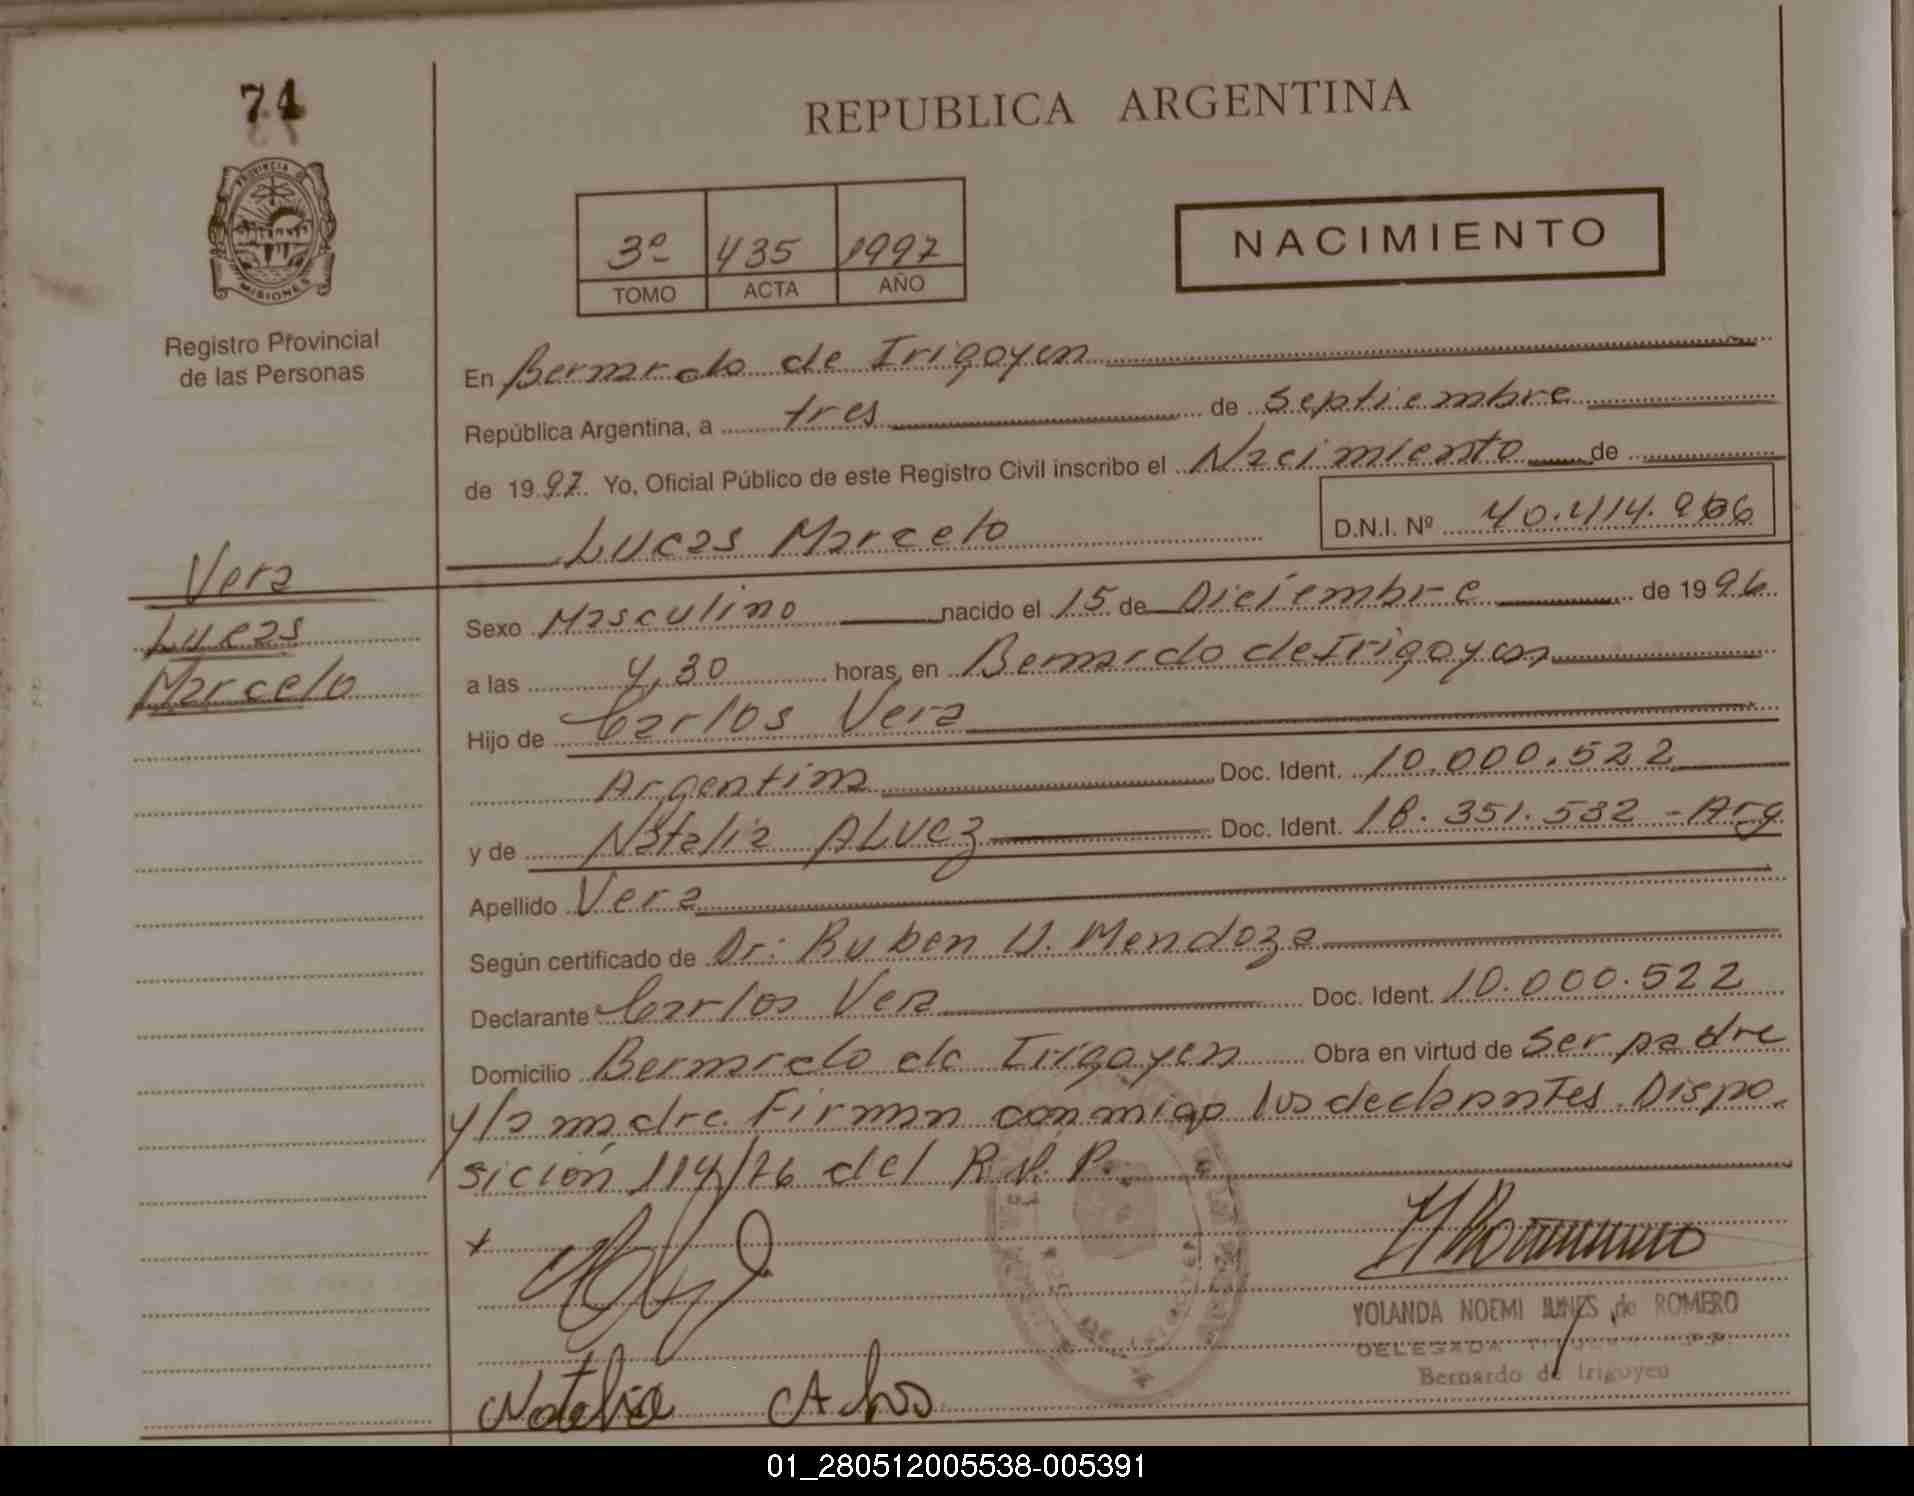 74
PROVINCIA DE
MISIONES
Registro Provincial
de las Personas
Vera
Lucas
Marcelo
REPUBLICA ARGENTINA
3º 435 1997
TOMO ACTA AÑO
NACIMIENTO
En Bernardo de Irigoyen
República Argentina, a tres de septiembre
de 1997. Yo, Oficial Público de este Registro Civil inscribo el Nacimiento de
Lucas Marcelo D.N.I. Nº 40.414.966
Sexo Masculino nacido el 15 de Diciembre de 1996
a las 4,30 horas, en Bernardo de Irigoyen
Hijo de Carlos Vera
Argentina Doc. Ident. 10.000.522
y de Natalia ALVEZ Doc. Ident. 18.351.532 - Arg
Apellido Vera
Según certificado de Dr: Ruben V. Mendoza
Declarante Carlos Vera Doc. Ident. 10.000.522
Domicilio Bernardo de Irigoyen Obra en virtud de ser padre
y/a madre. Firman conmigo los declarantes. Dispo-
sición 114/76 del R.P.
Natalia
YOLANDA NOEMI de ROMERO
DELEGADA
Bernardo de Irigoyen
01_280512005538-005391